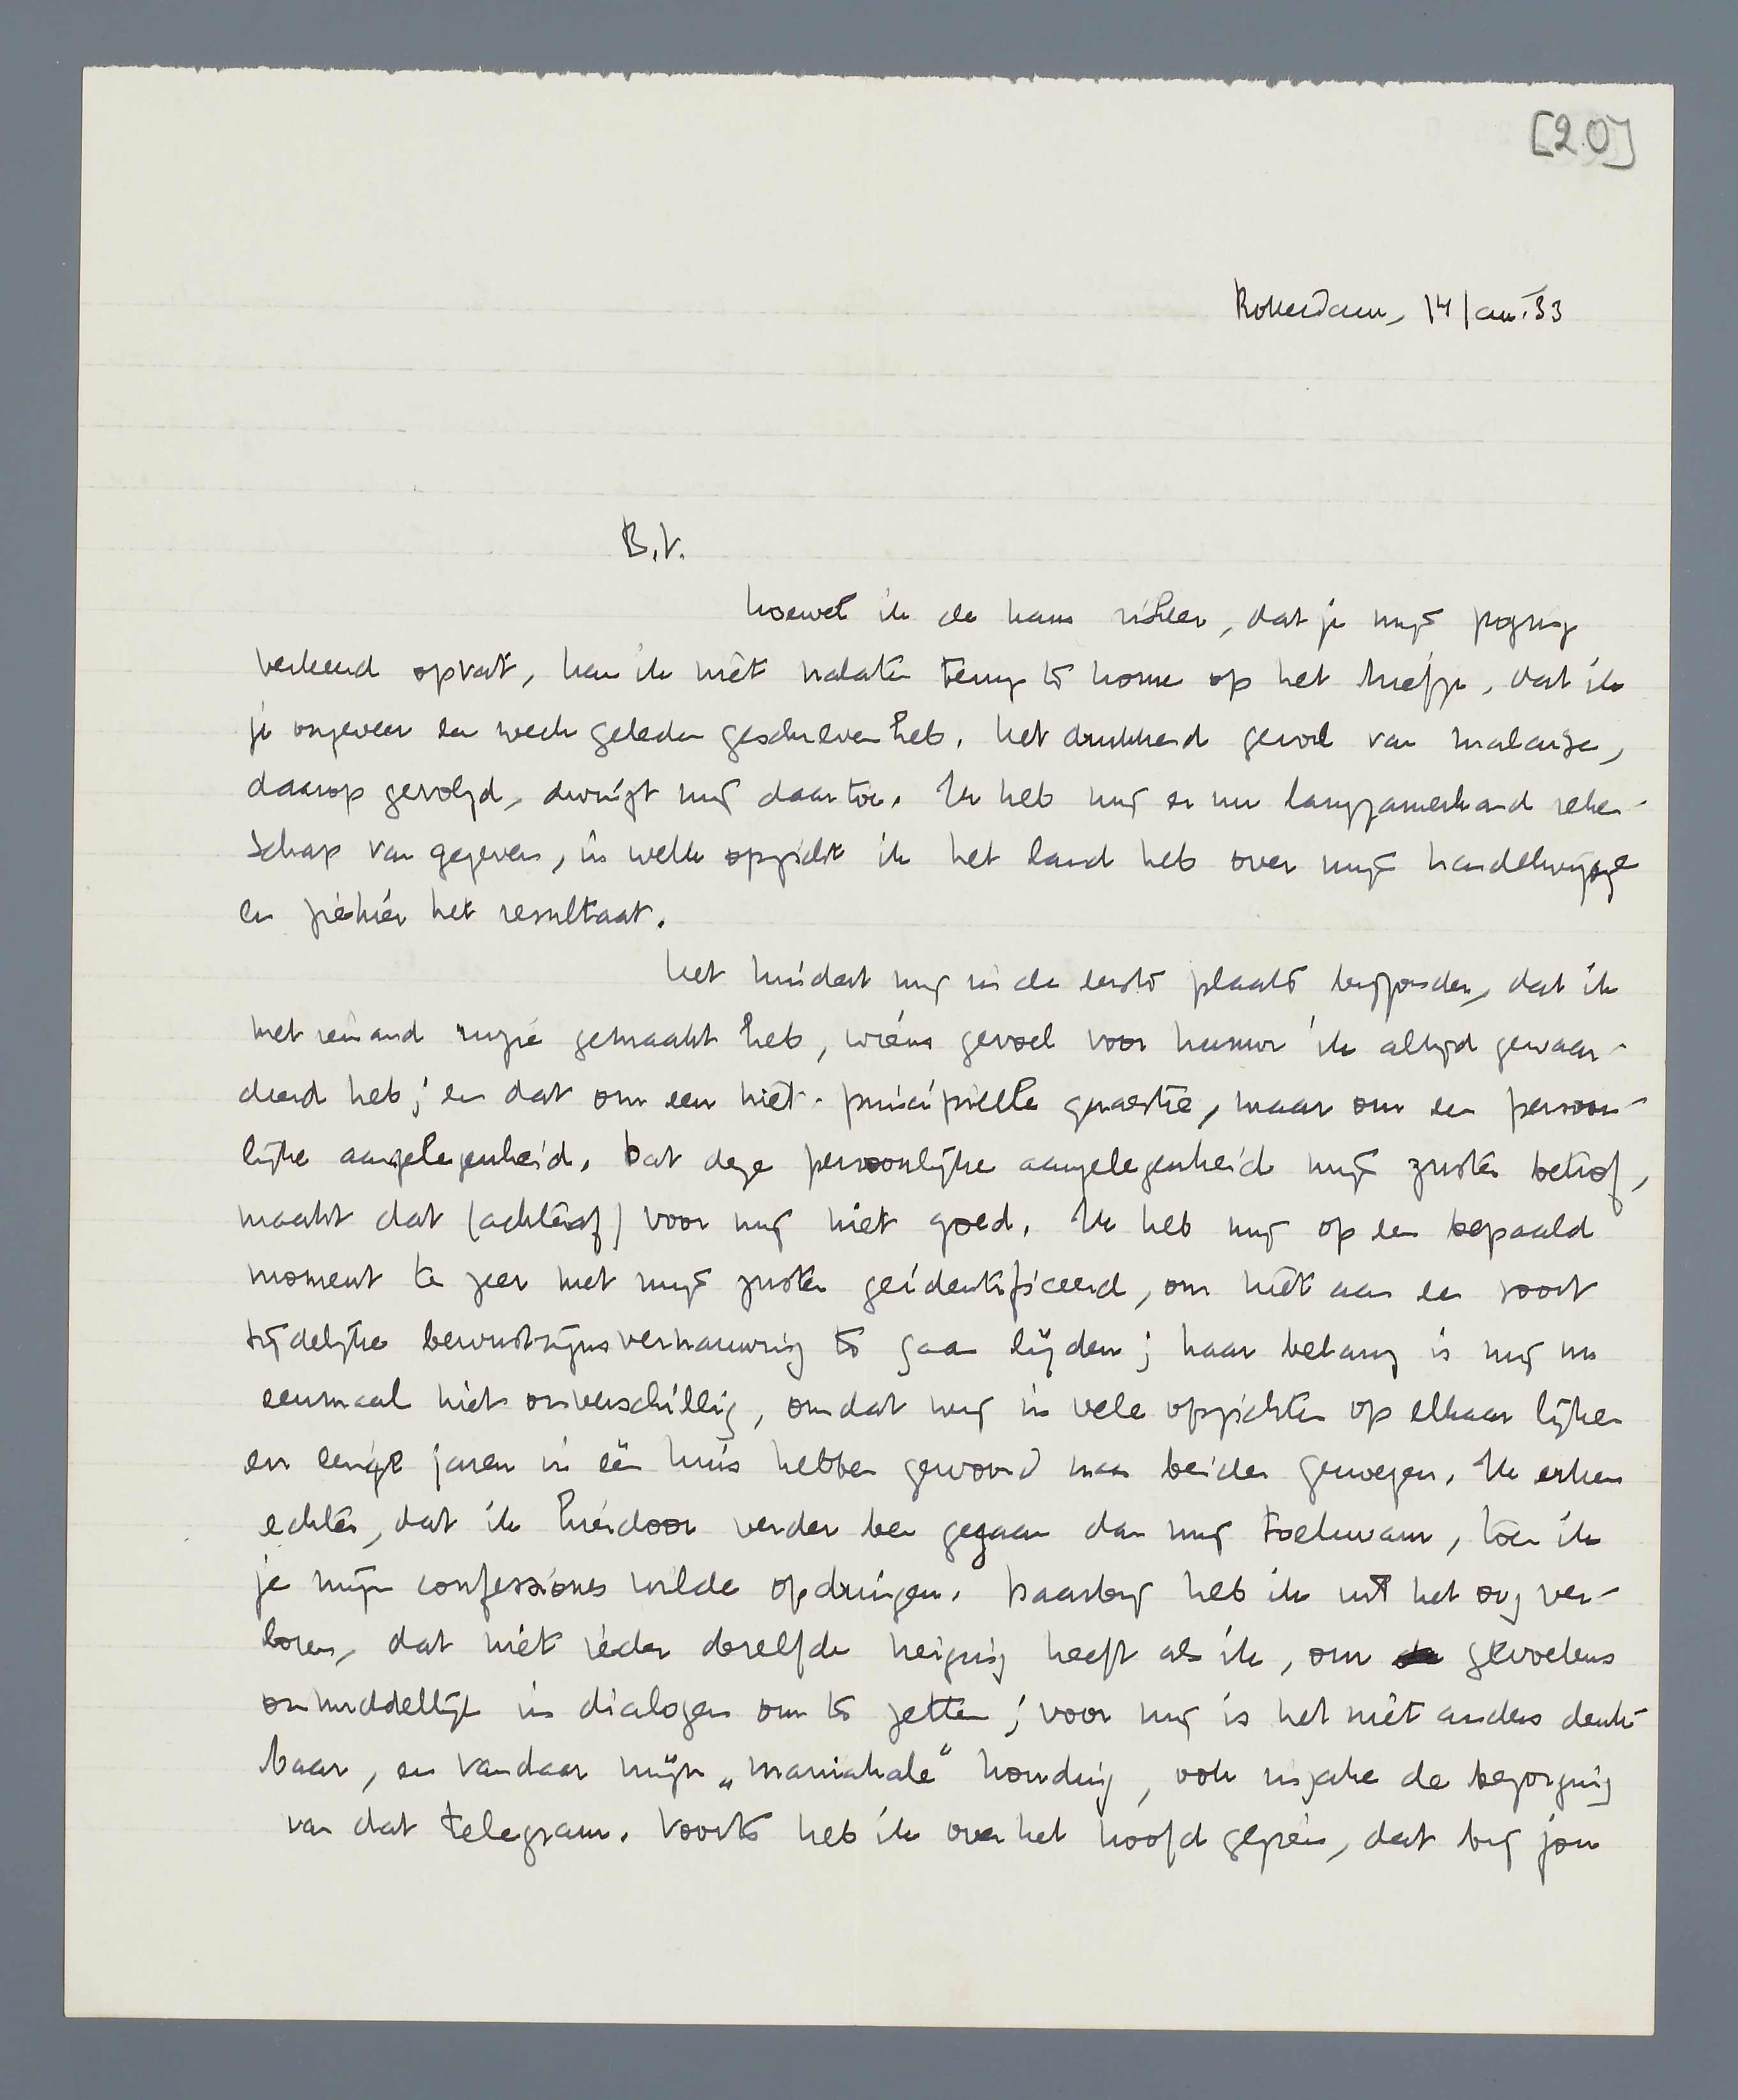 [20]
Rotterdam, 14 Jan. '33
B.V.
hoewel ik de kans riskeer, dat je mijn poging
verkeerd opvat, kan ik niet nalaten terug te komen op het briefje, dat ik
je ongeveer een week geleden geschreven heb. Het drukkend gevoel van malaise,
daarop gevolgd, dwingt mij daartoe. Ik heb mij er nu langzamerhand reken-
schap van gegeven, in welk opzicht ik het land heb over mijn handelwijze
en ziehier het resultaat.
Het hindert mij in de eerste plaats bijzonder, dat ik
met iemand ruzie gemaakt heb, wiens gevoel voor humor ik altijd gewaar-
deerd heb; en dat om een niet-principieele quaestie, maar om een persoon-
lijke aangelegenheid. Dat deze persoonlijke aangelegenheid mijn zuster betrof,
maakt dat (achteraf) voor mij niet goed. Ik heb mij op een bepaald
moment te zeer met mijn zuster geïdentificeerd, om niet aan een soort
tijdelijke bewustzijnsvernauwing te gaan lijden; haar belang is mij nu
eenmaal niet onverschillig, omdat wij in vele opzichten op elkaar lijken
en eenige jaren in één huis hebben gewoond naar beider genoegen. Ik erken
echter, dat ik hierdoor verder ben gegaan dan mij toekwam, toen ik
je mijn confessiones wilde opdringen. Daarbij heb ik uit het oog ver-
loren, dat niet ieder dezelfde neiging heeft als ik, om gevoelens
onmiddellijk in dialogen om te zetten; voor mij is het niet anders denk-
baar, en vandaar mijn „maniakale" houding, ook inzake de bezorging
van dat telegram. Voorts heb ik over het hoofd gezien, dat bij jou